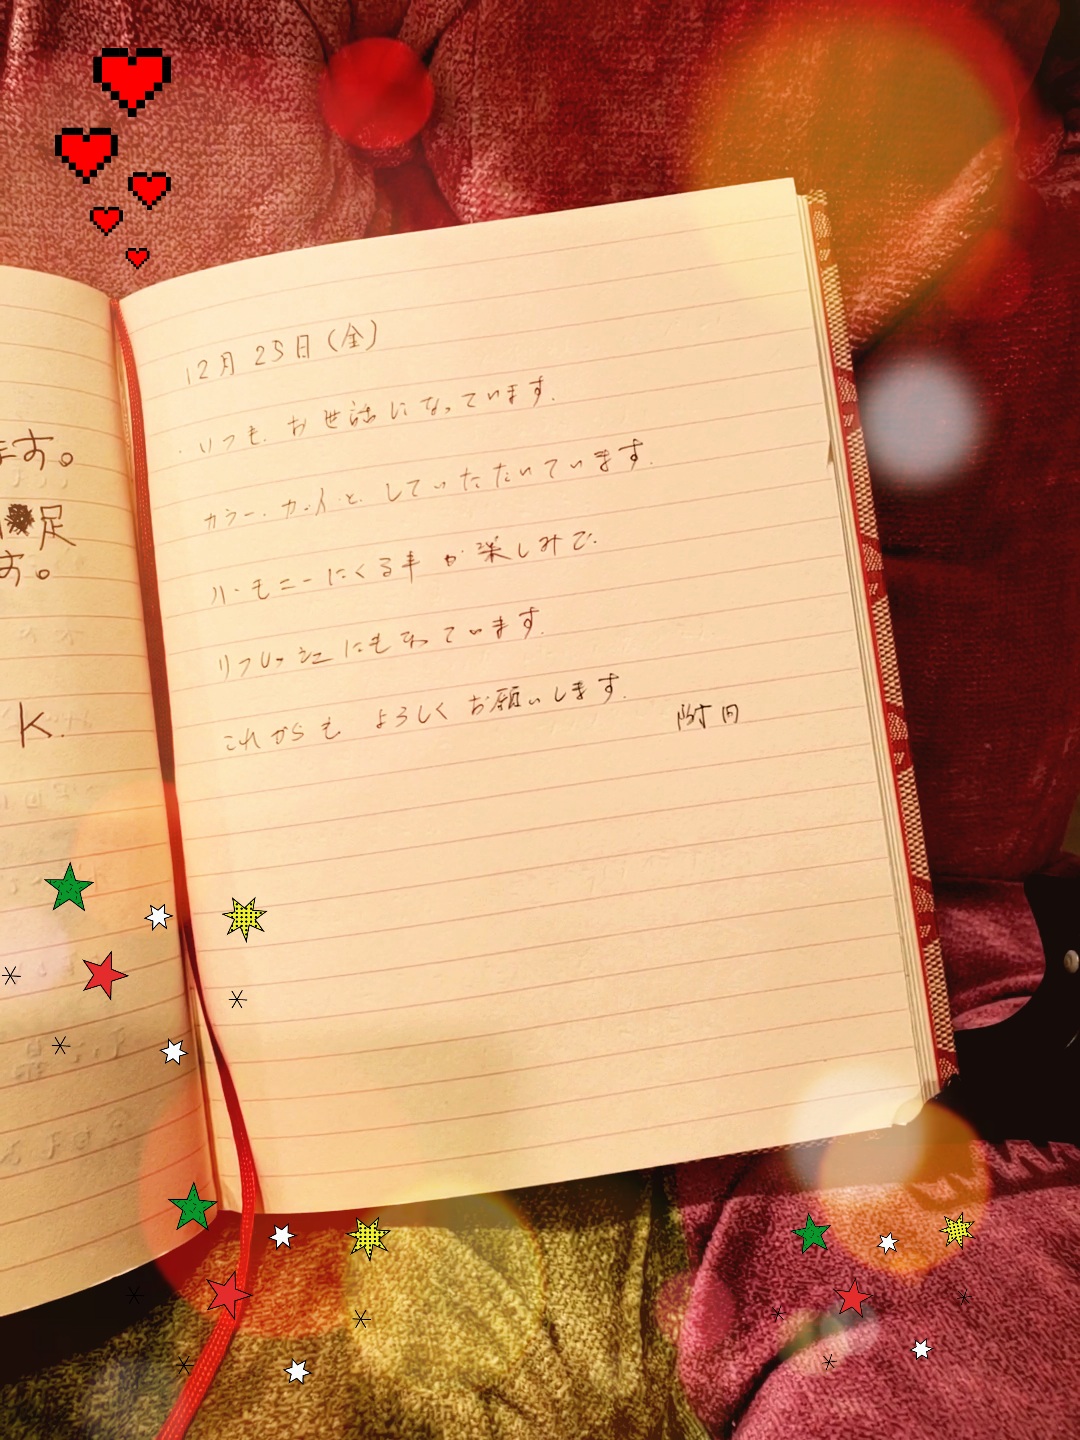 ます。
足
す。
K.
12月 25日(金)
いつも お世話になっています.
カラー. カットと していただいています.
ハーモニーにくる事が楽しみで.
リフレッシュにもなっています.
これからも よろしく お願いします.